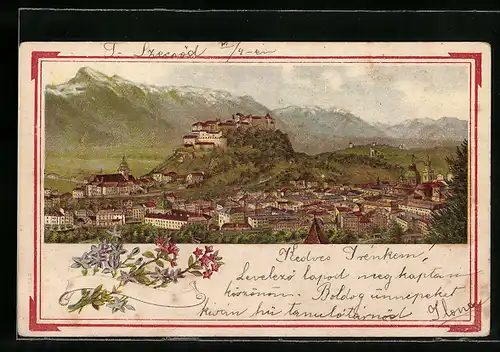 T. Szerőd 4/4-én
Kedves Irénkém!
Levelező lapod meg kaptam
köszönöm. Boldog ünnepeket
kíván hű tanulótársnőt
Ilona